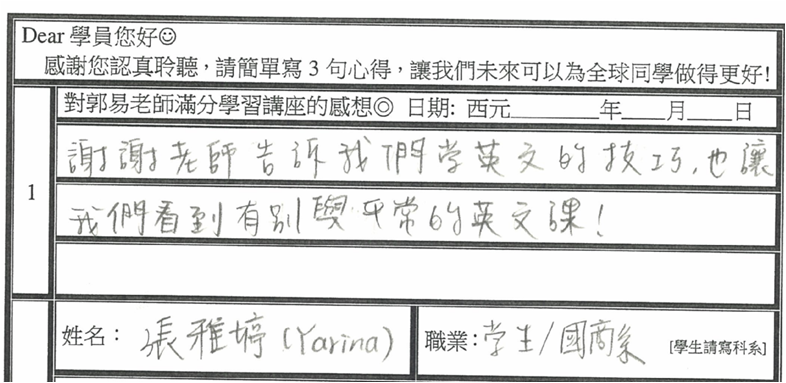 Dear 學員您好☺
感謝您認真聆聽，請簡單寫 3 句心得，讓我們未來可以為全球同學做得更好!
1
對郭易老師滿分學習講座的感想◎ 日期: 西元________年____月____日
謝謝老師告訴我們学英文的技巧，也讓
我們看到有別與平常的英文課！
姓名： 張雅婷 (Yarina) 職業：学生/國商系 [學生請寫科系]